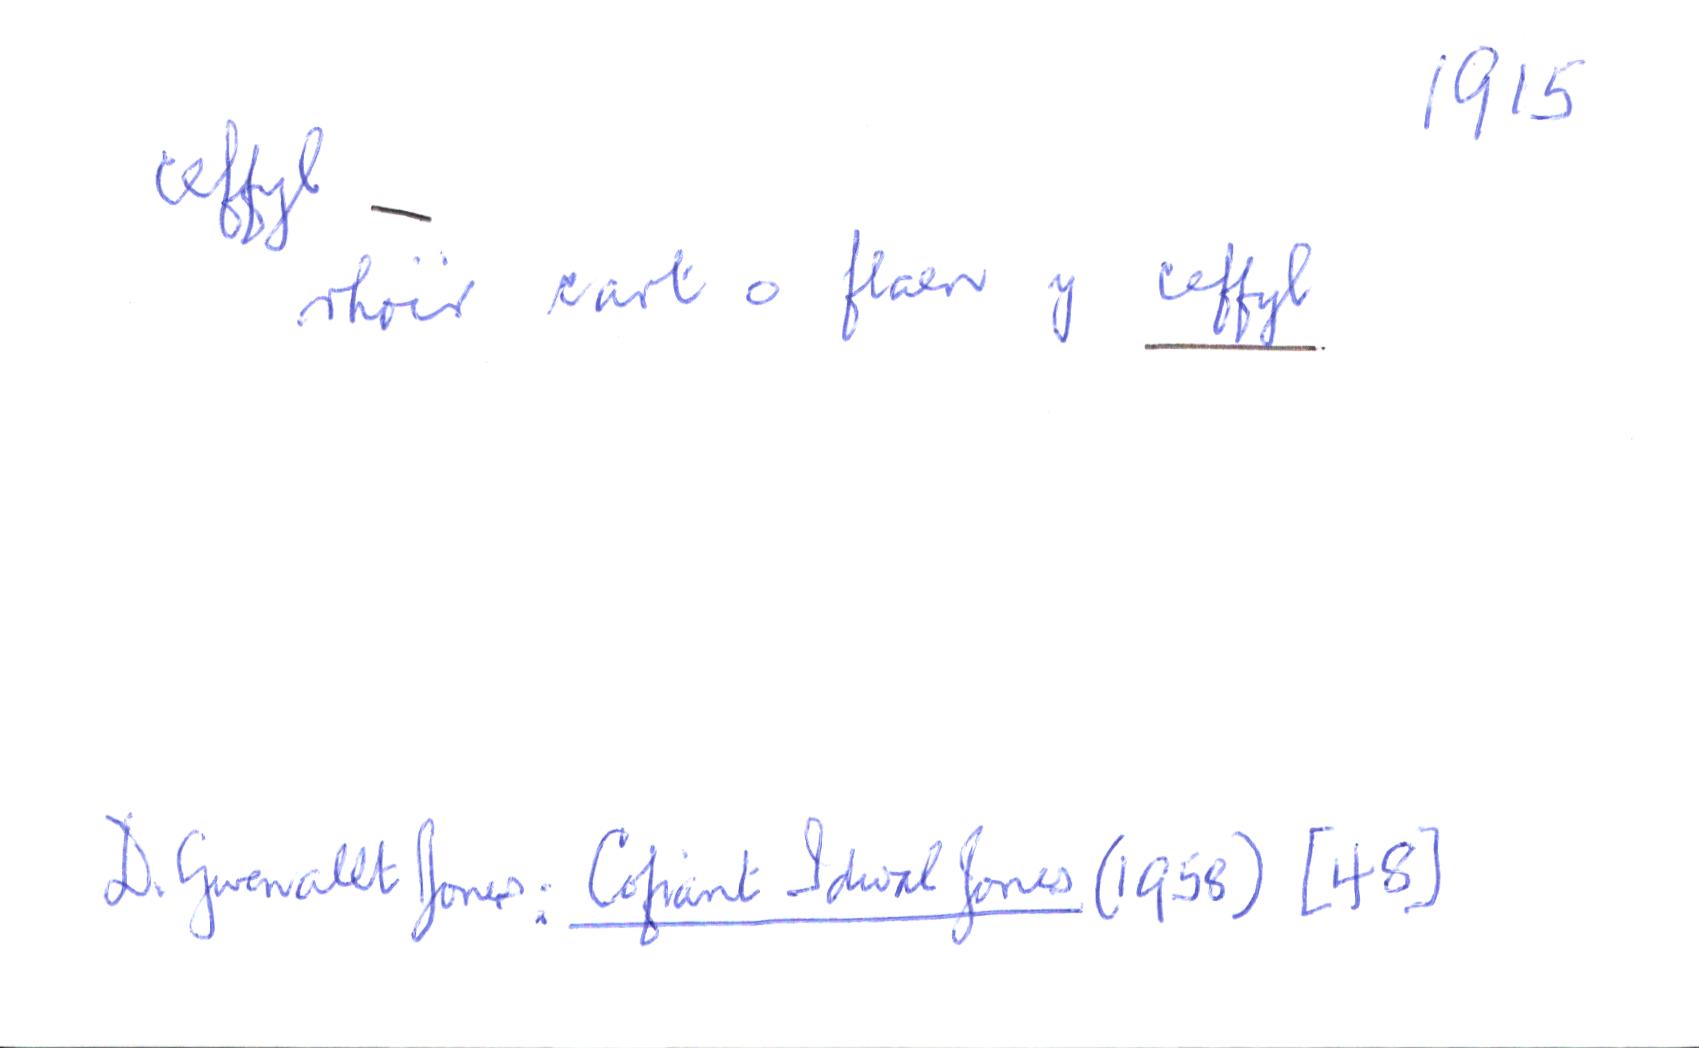 1915
ceffyl —
rhoi'r cart o flaen y ceffyl.
D. Gwenallt Jones: Cofiant Idwal Jones (1958) [48]